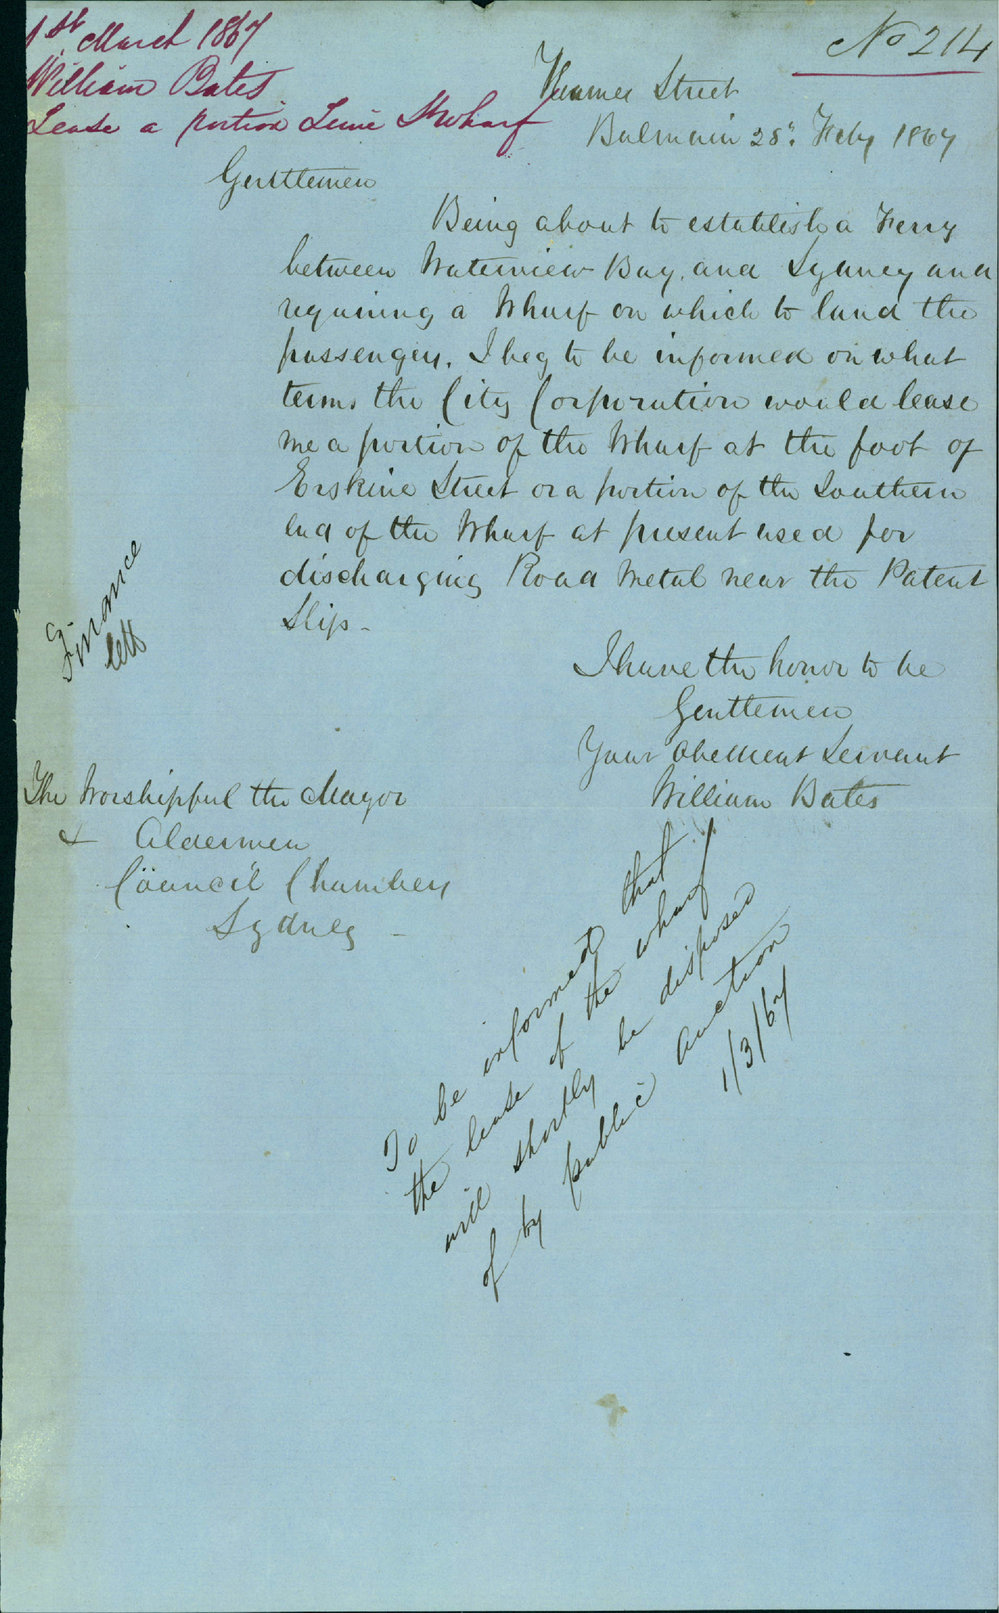 1st March 1867
William Bates
Lease a portion Lime St Wharf
No 214
Street
Balmain 28th Feby 1867
Gentlemen
Being about to establish a Ferry
between Waterview Bay, and Sydney and
requiring a Wharf on which to land the
passengers, I beg to be informed on what
terms the City Corporation would lease
me a portion of the Wharf at the foot of
Erskine Street or a portion of the Southern
end of the Wharf at present used for
discharging Road Metal near the Patent
Slip -
I have the honor to be
Gentlemen
Your obedient Servant
William Bates
Finance
lett
The Worshipful the Mayor
& Aldermen
Council Chambers
Sydney -
To be informed that
the lease of the wharf
will shortly be disposed
of by public auction
1/3/67